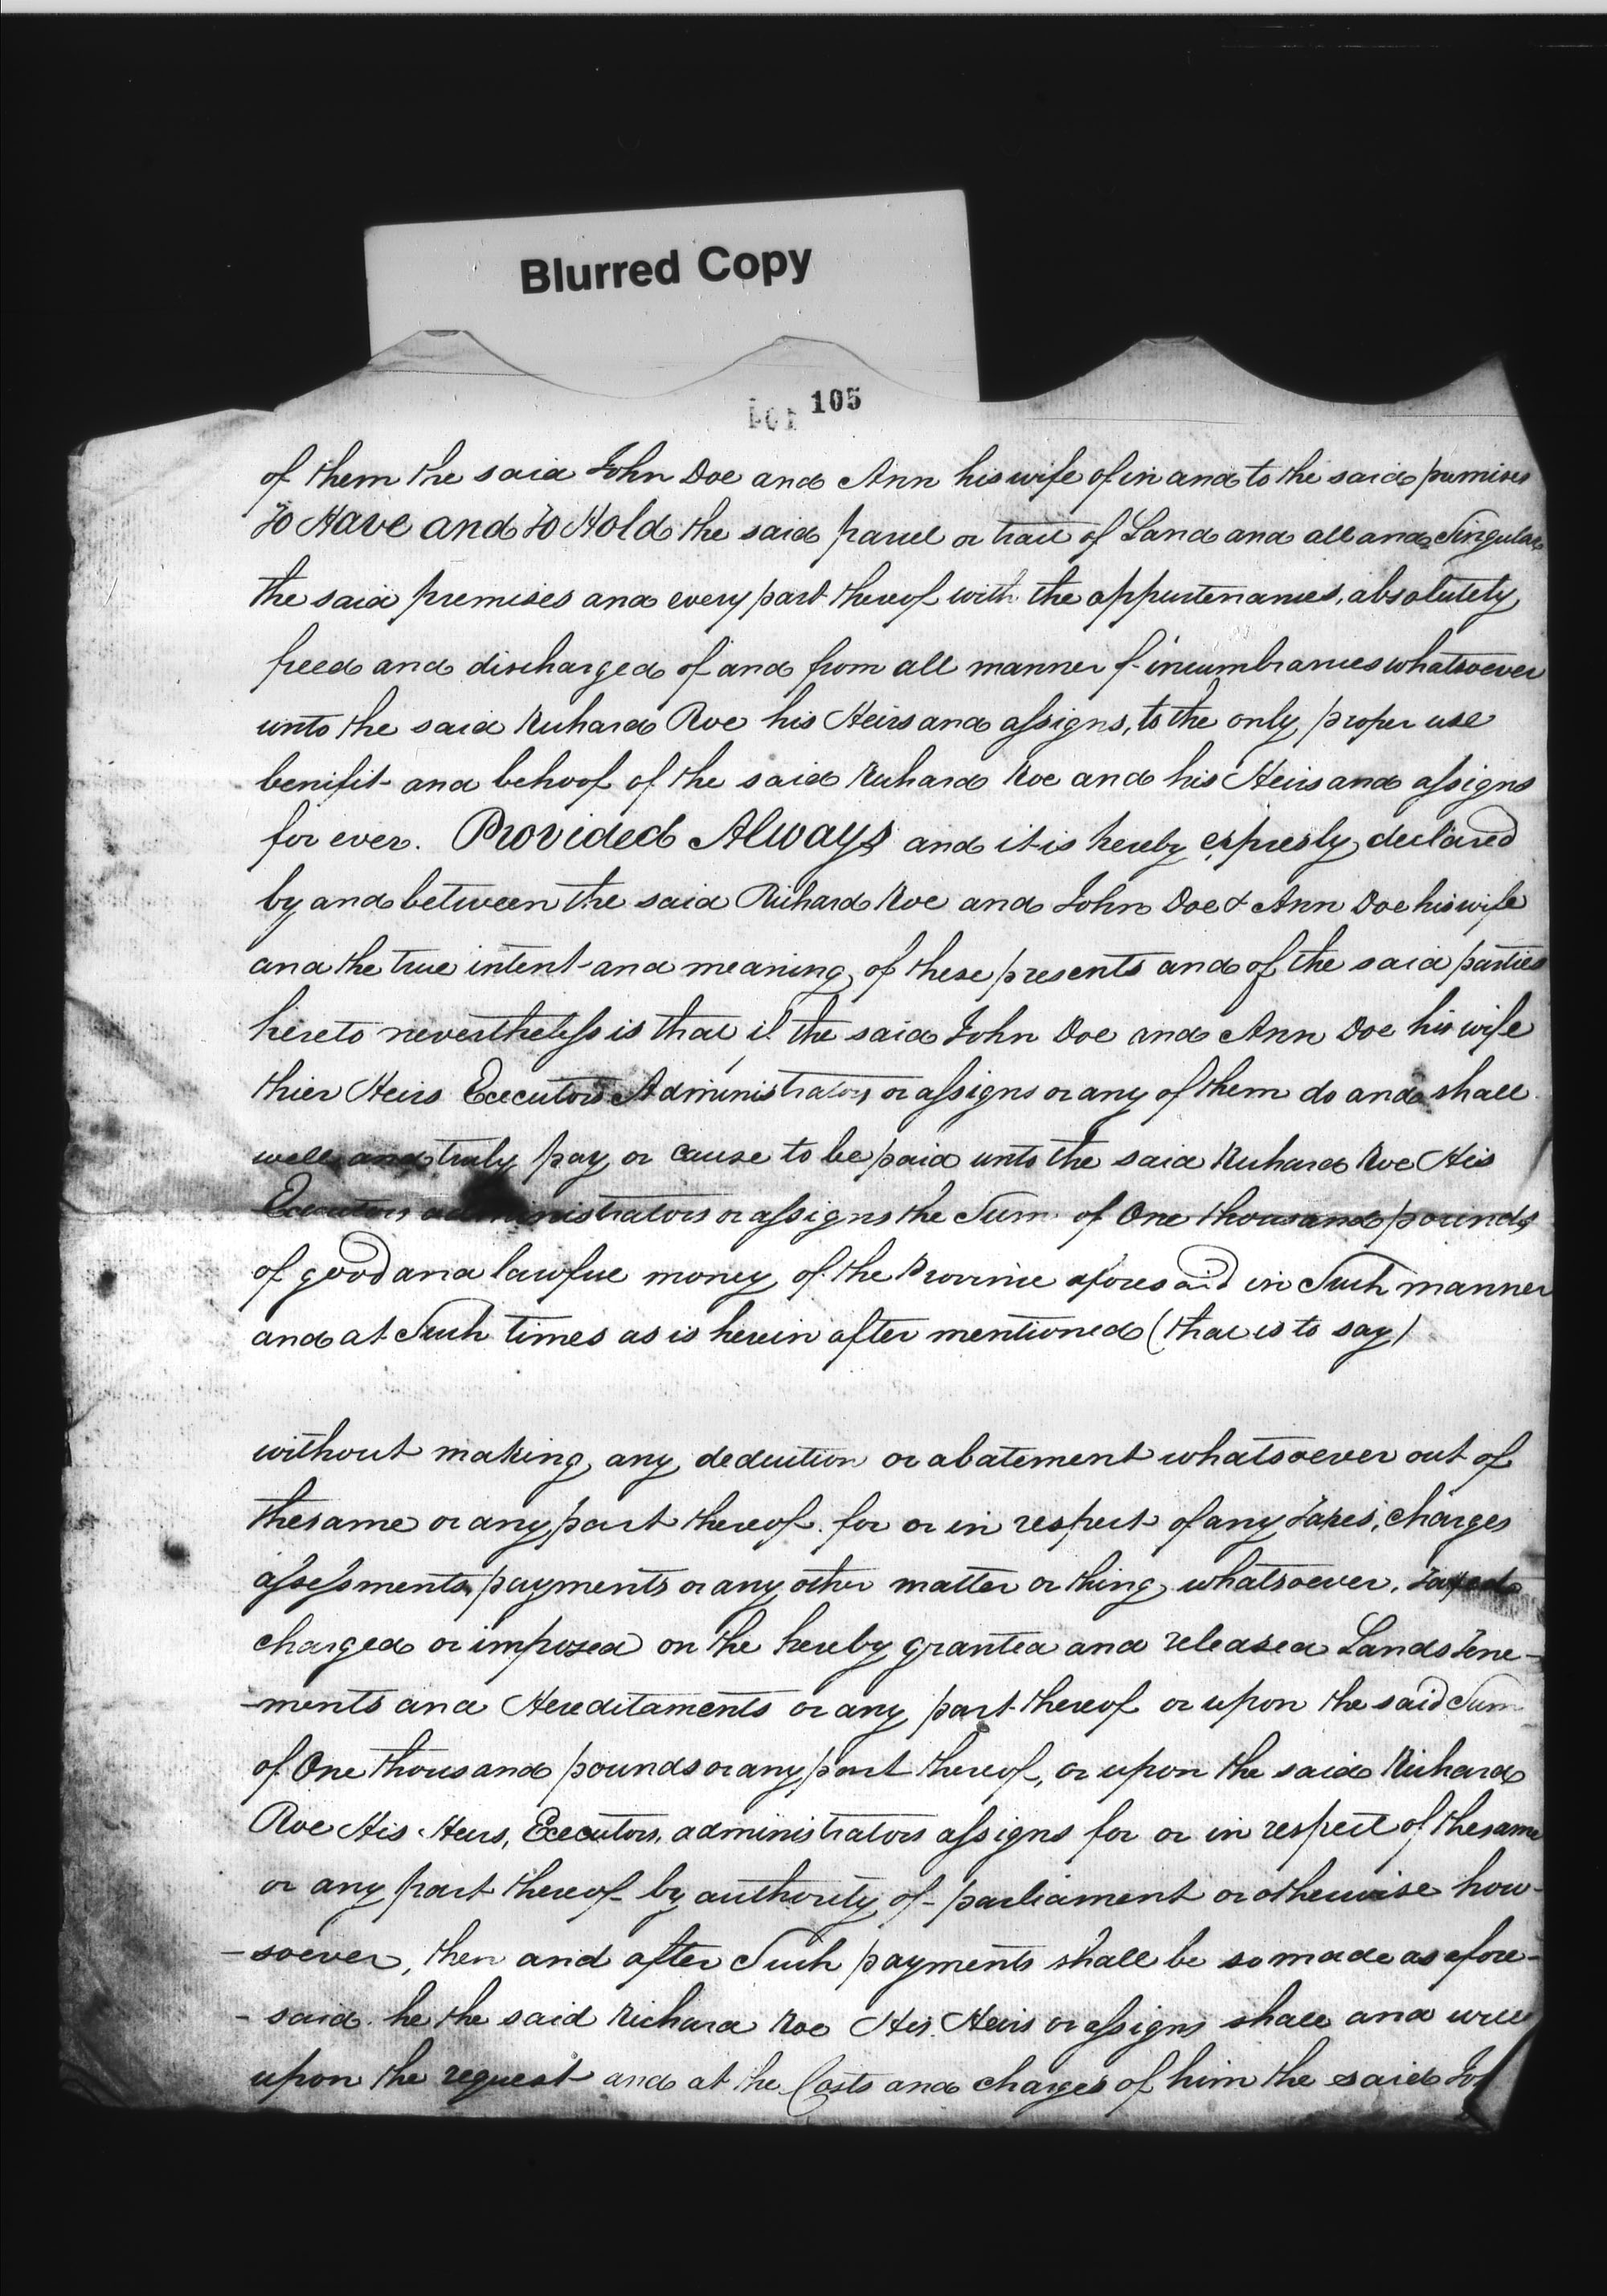 Blurred Copy
105
of them the said John Doe and Ann his wife of in and to the said premises
To Have and To Hold the said parcel or tract of Land and all and Singular
the said premises and every part thereof with the appurtenances, absolutely
freed and discharged of and from all manner of incumbrances whatsoever
unto the said Richard Roe his Heirs and assigns, to the only proper use
benifit and behoof of the said Richard Roe and his Heirs and assigns
for ever. Provided Always and it is hereby expresly declared
by and between the said Richard Roe and John Doe & Ann Doe his wife
and the true intent and meaning of these presents and of the said parties
hereto nevertheless is that if the said John Doe and Ann Doe his wife
thier Heirs Executors Administrators or assigns or any of them do and shall
well and truly pay or cause to be paid unto the said Richard Roe His
Executors administrators or assigns the Sum of One thousand pounds
of good and lawful money of the Province aforesaid in Such manner
and at Such times as is herein after mentioned (that is to say)
without making any deduction or abatement whatsoever out of
the same or any part thereof for or in respect of any Taxes, Charges
assessments, payments or any other matter or thing whatsoever, Taxed
charged or imposed on the hereby granted and released Lands Tene-
-ments and Hereditaments or any part thereof or upon the said Sum
of One thousand pounds or any part thereof, or upon the said Richard
Roe His Heirs, Executors, administrators assigns for or in respect of the same
or any part thereof by authority of parliament or otherwise how-
-soever, then and after Such payments shall be so made as afore-
-said he the said Richard Roe His Heirs or assigns shall and will
upon the request and at the Costs and charges of him the said Joh